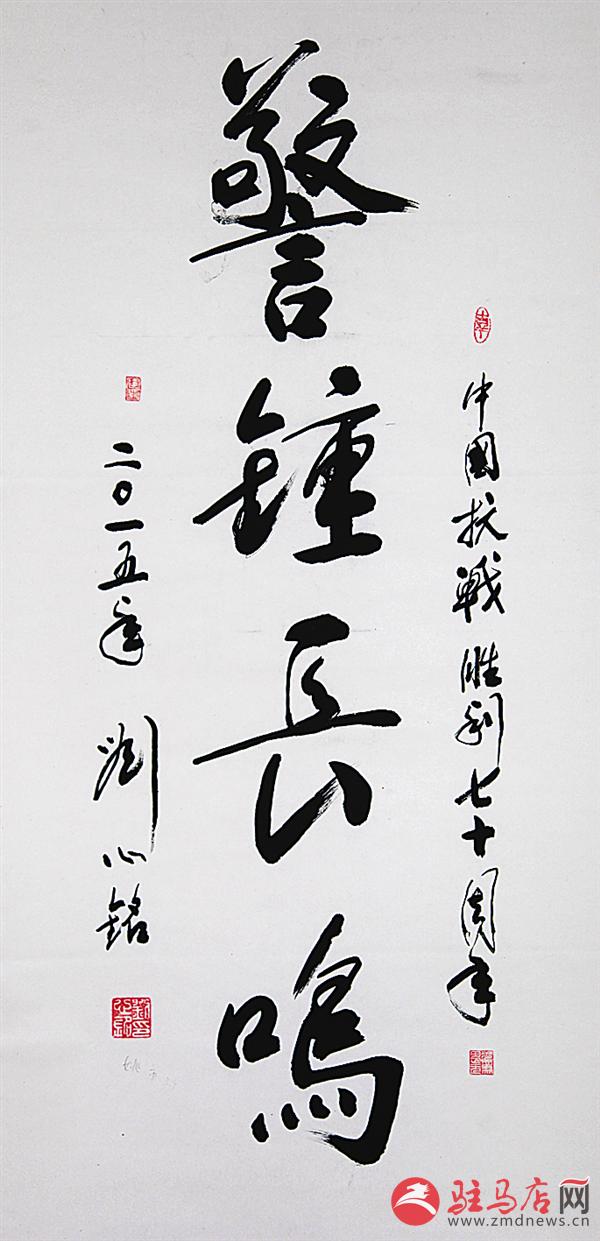 中國抗戰勝利七十周年
警鍾長鳴
二〇一五年 劉心銘
驻马店网
www.zmdnews.cn